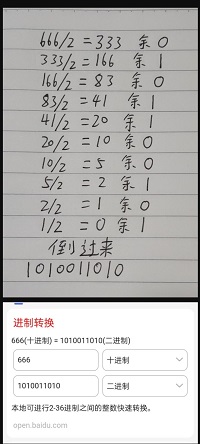 666/2 = 333 余 0
333/2 = 166 余 1
166/2 = 83 余 0
83/2 = 41 余 1
41/2 = 20 余 1
20/2 = 10 余 0
10/2 = 5 余 0
5/2 = 2 余 1
2/2 = 1 余 0
1/2 = 0 余 1
倒过来
1010011010
进制转换
666(十进制) = 1010011010(二进制)
666 十进制
1010011010 二进制
本地可进行2-36进制之间的整数快速转换。
open.baidu.com